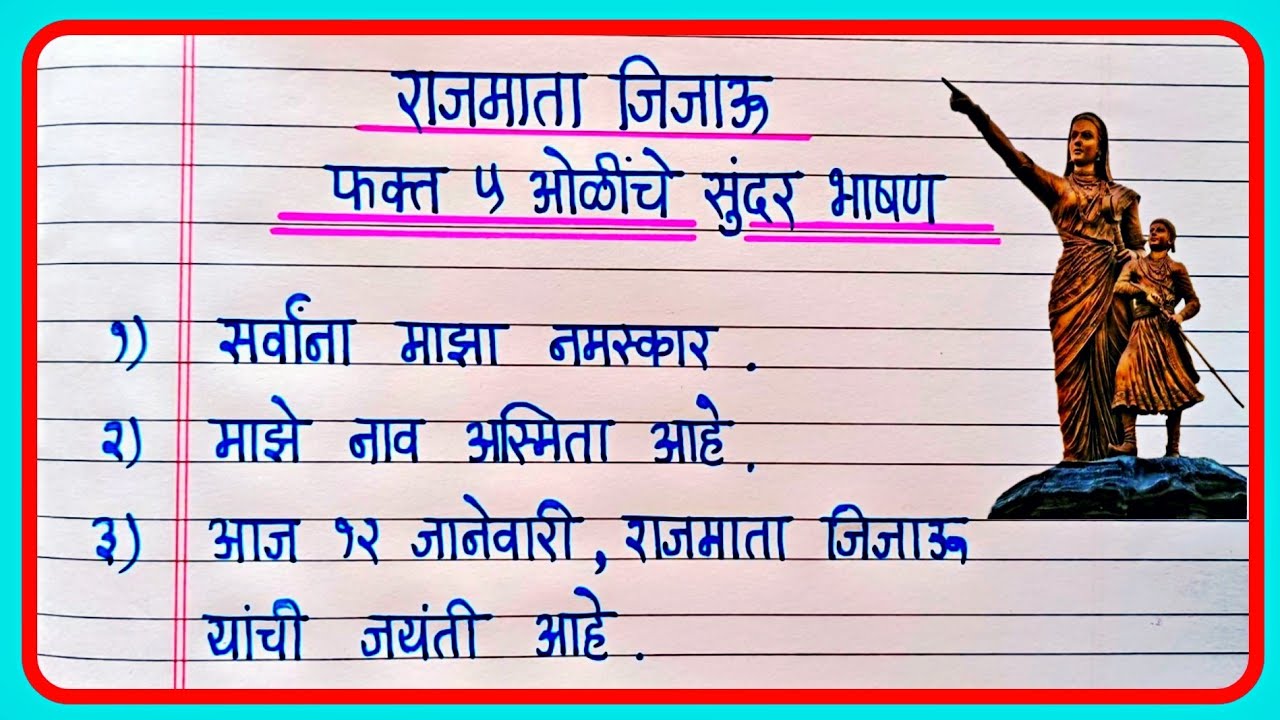 राजमाता जिजाऊ
फक्त ५ ओळींचे सुंदर भाषण
१) सर्वांना माझा नमस्कार .
२) माझे नाव अस्मिता आहे .
३) आज १२ जानेवारी , राजमाता जिजाऊ
यांची जयंती आहे .